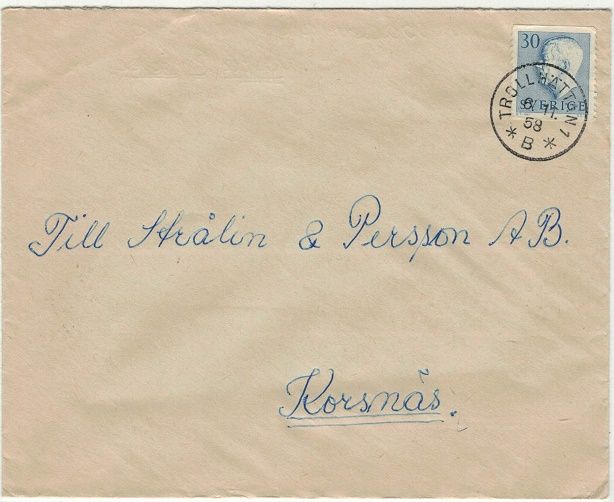 30
SVERIGE
TROLLHÄTTAN 1
6.11.
58
* B *
Till Strålin & Persson AB.
Korsnäs.